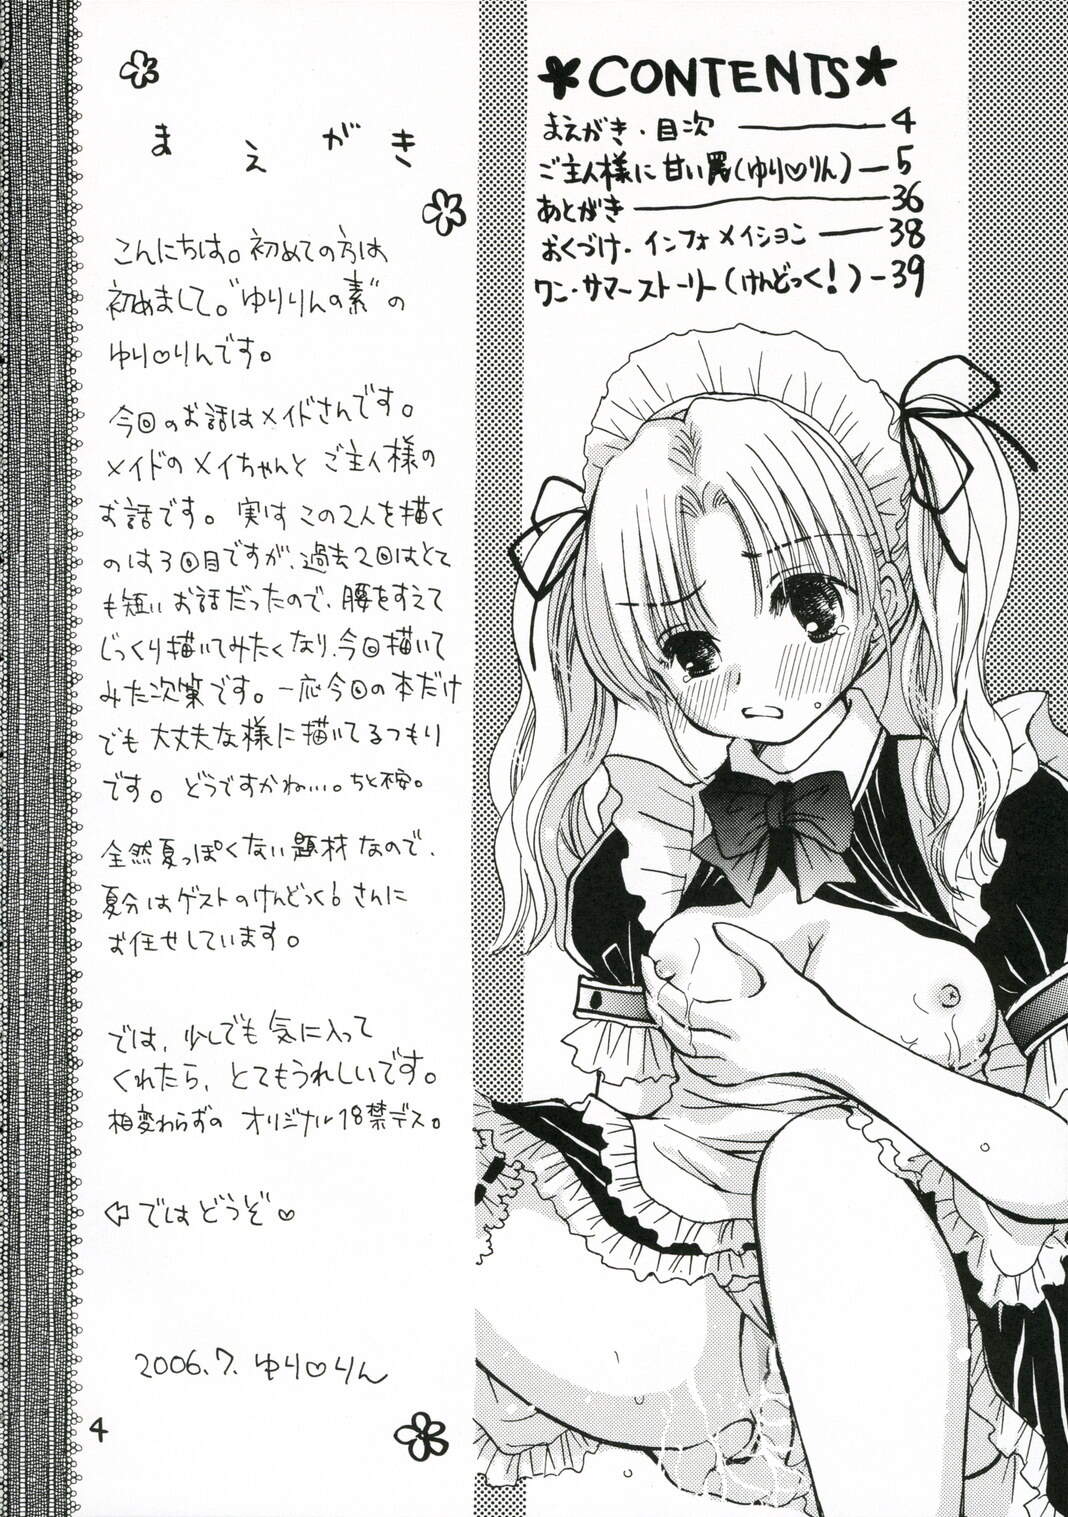 *CONTENTS*
まえがき・目次 ――― 4
ご主人様に甘い罠(ゆり♡りん) ― 5
あとがき ――――― 36
おくづけ・インフォメイション ―― 38
ワン・サマーストーリー(けんどっく!) ― 39
まえがき
こんにちは。初めての方は
初めまして。"ゆりりんの素"の
ゆり♡りんです。
今回のお話はメイドさんです。
メイドのメイちゃんと ご主人様の
お話です。実はこの2人を描く
のは3回目ですが、過去2回はとて
も短いお話だったので、腰をすえて
じっくり描いてみたくなり、今回描いて
みた次第です。一応今回の本だけ
でも大丈夫な様に描いてるつもり
です。どうですかねぃ…。ちと不安。
全然夏っぽくない題材なので、
夏分はゲストのけんどっく!さんに
お任せしています。
では、少しでも気に入って
くれたら、とてもうれしいです。
相変わらずの オリジナル18禁デス。
⇦ ではどうぞ♡
2006.7. ゆり♡りん
4